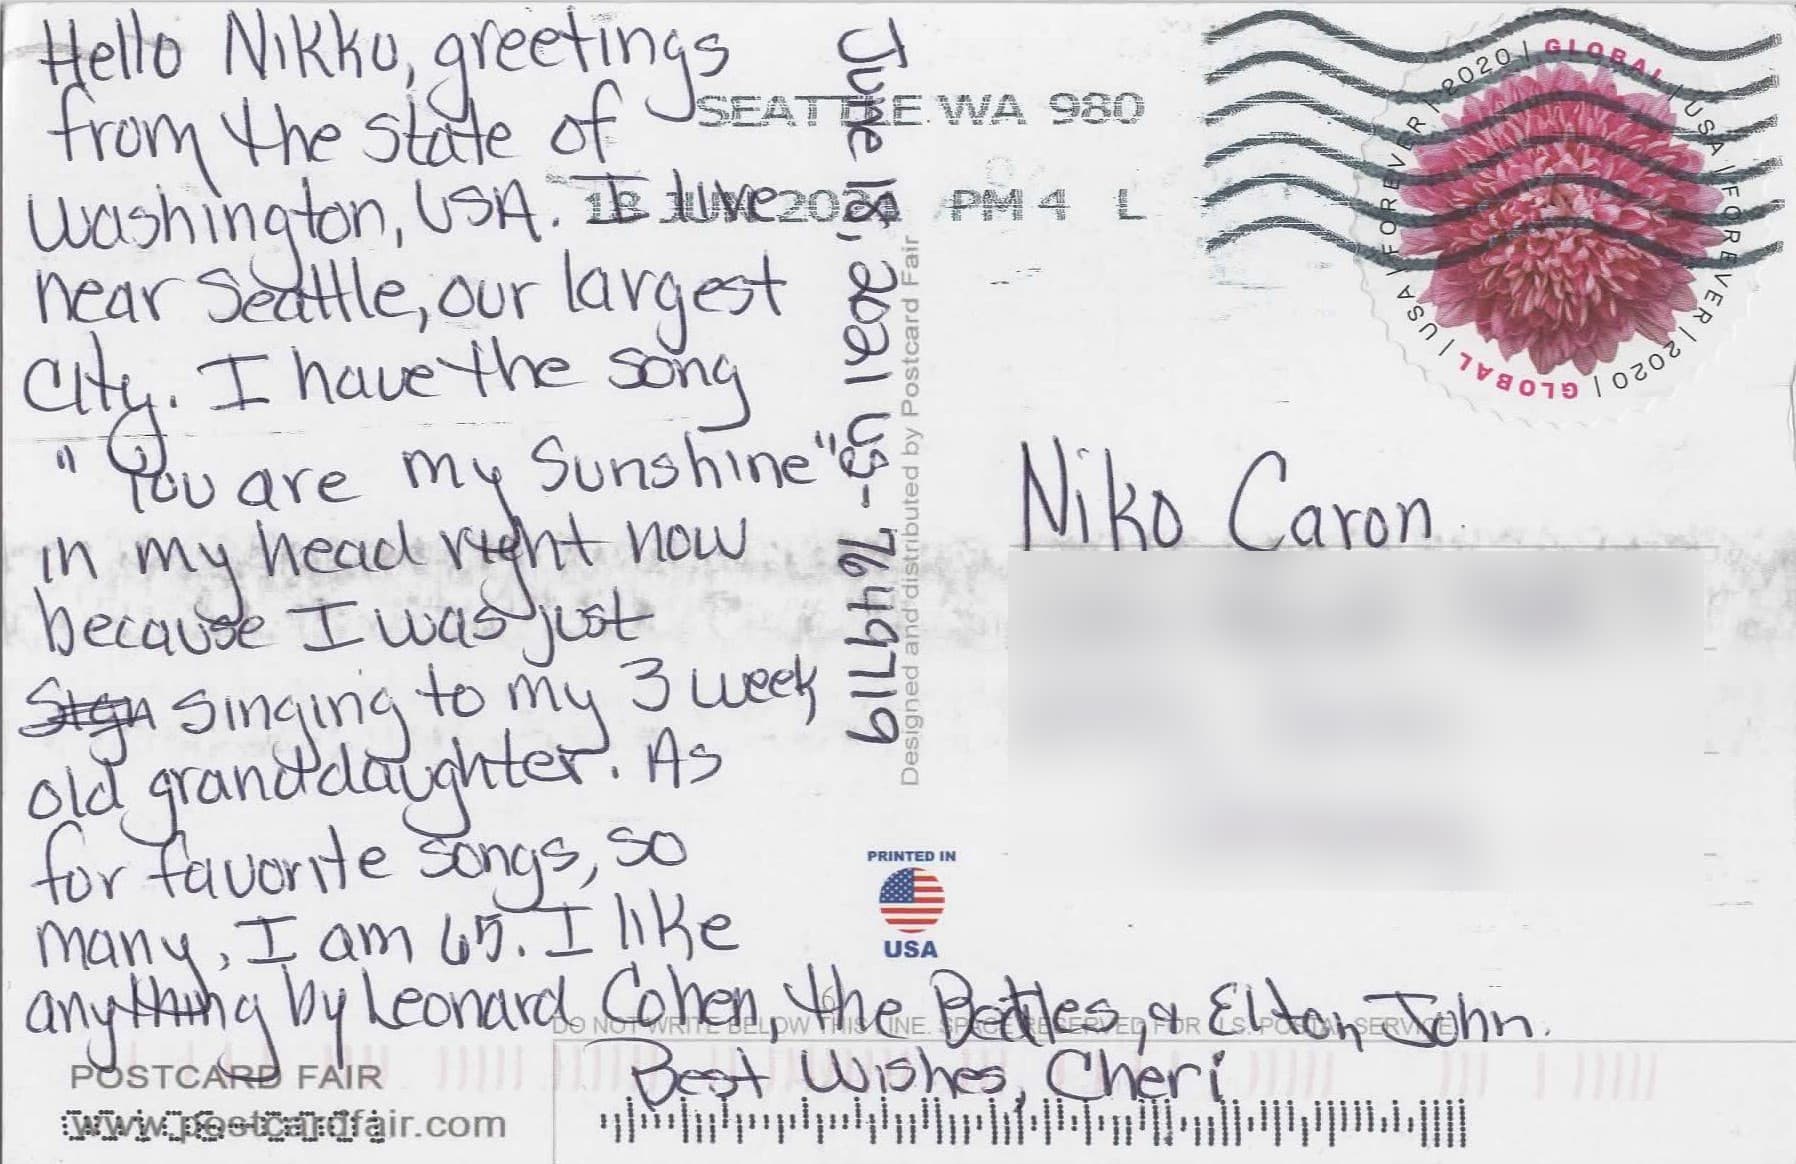 Hello Nikko, greetings
from the state of
Washington, USA. I live
near Seattle, our largest
City. I have the song
"You are my Sunshine"
in my head right now
because I was just
Sign singing to my 3 week
old granddaughter. As
for favorite songs, so
many, I am 65. I like
anything by Leonard Cohen, the Beatles, & Elton John.
Best Wishes, Cheri
June 18, 2021 US-7649719
Designed and distributed by Postcard Fair
SEATTLE WA 980
18 JUN 2021 PM 4 L
GLOBAL | USA | FOREVER | 2020 | GLOBAL | USA | FOREVER | 2020 |
Niko Caron
PRINTED IN
USA
DO NOT WRITE BELOW THIS LINE. SPACE RESERVED FOR U.S. POSTAL SERVICE
POSTCARD FAIR
www.postcardfair.com